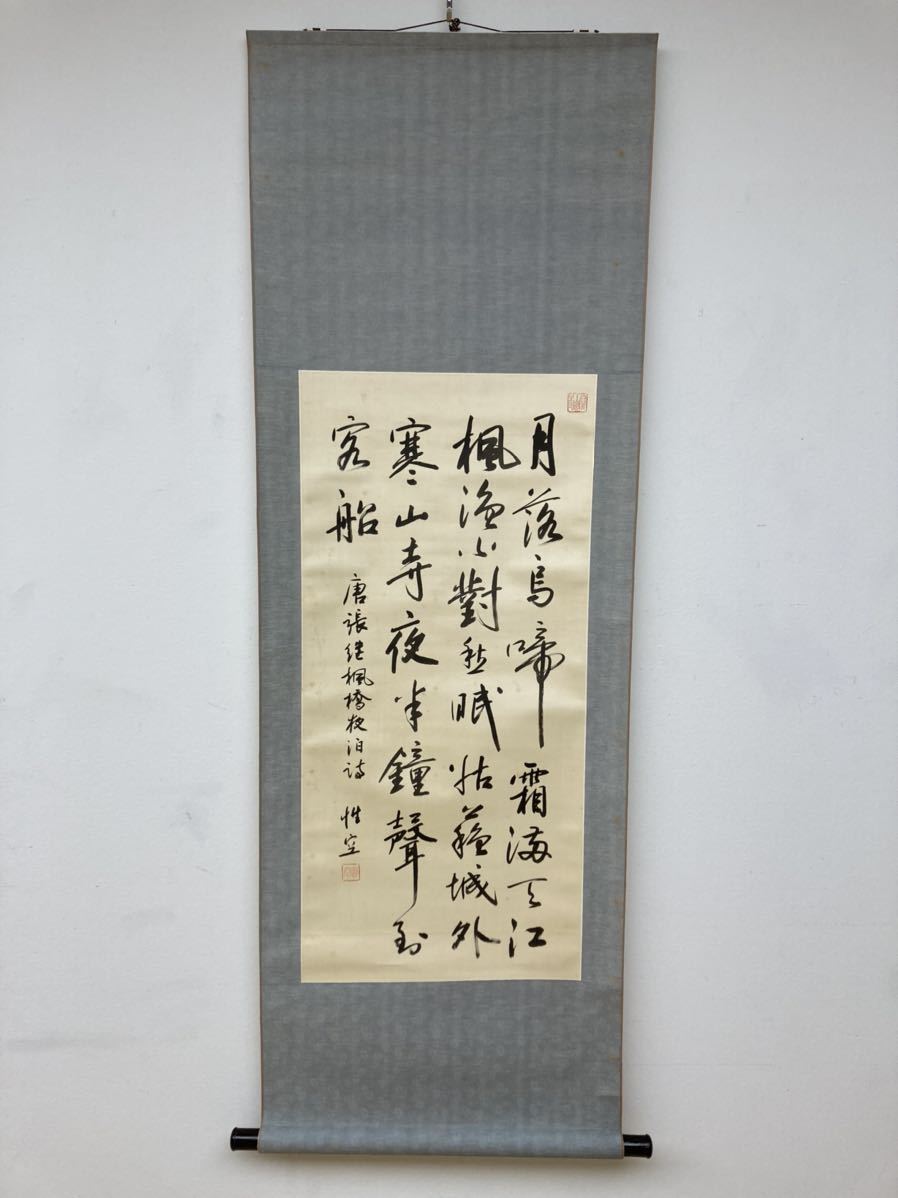 月落烏啼霜滿天江
楓漁火對愁眠姑蘇城外
寒山寺夜半鐘聲到
客船
唐張继楓橋夜泊詩 性空